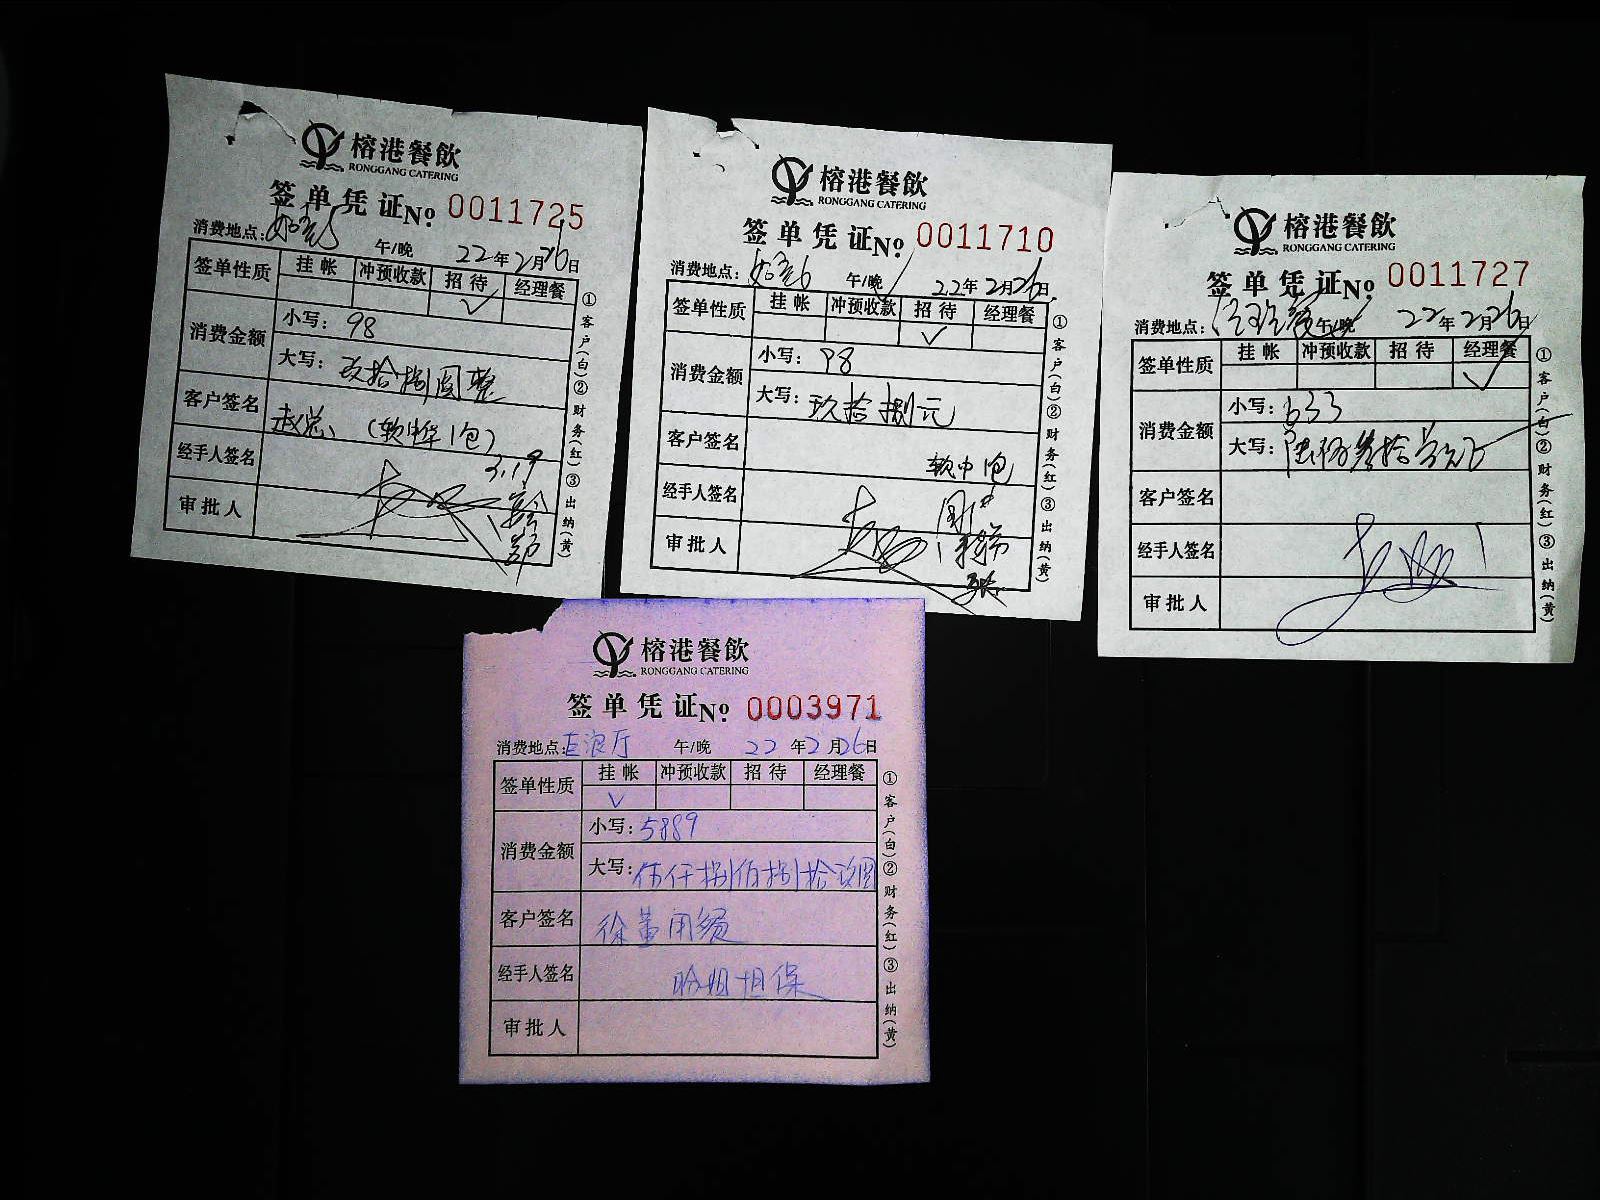 榕港餐飲
RONGGANG CATERING
签单凭证No. 0011725
消费地点: 午/晚 22年2月26日
签单性质 挂帐 冲预收款 招待 经理餐
✓
消费金额 小写: 98
大写: 玖拾捌圆整
客户签名 赵总 (软中华1包)
经手人签名
审批人
①客户(白)②财务(红)③出纳(黄)
榕港餐飲
RONGGANG CATERING
签单凭证No. 0011710
消费地点: 午/晚 22年2月26日
签单性质 挂帐 冲预收款 招待 经理餐
✓
消费金额 小写: 98
大写: 玖拾捌元
客户签名 软中1包
经手人签名
审批人
①客户(白)②财务(红)③出纳(黄)
榕港餐飲
RONGGANG CATERING
签单凭证No. 0011727
消费地点: 午/晚 22年2月26日
签单性质 挂帐 冲预收款 招待 经理餐
✓
消费金额 小写: 633
大写: 陆佰叁拾叁元正
客户签名
经手人签名
审批人
①客户(白)②财务(红)③出纳(黄)
榕港餐飲
RONGGANG CATERING
签单凭证No. 0003971
消费地点: 巨浪厅 午/晚 22年2月26日
签单性质 挂帐 冲预收款 招待 经理餐
✓
消费金额 小写: 5889
大写: 伍仟捌佰捌拾玖圆
客户签名 徐董用餐
经手人签名 吟姐担保
审批人
①客户(白)②财务(红)③出纳(黄)